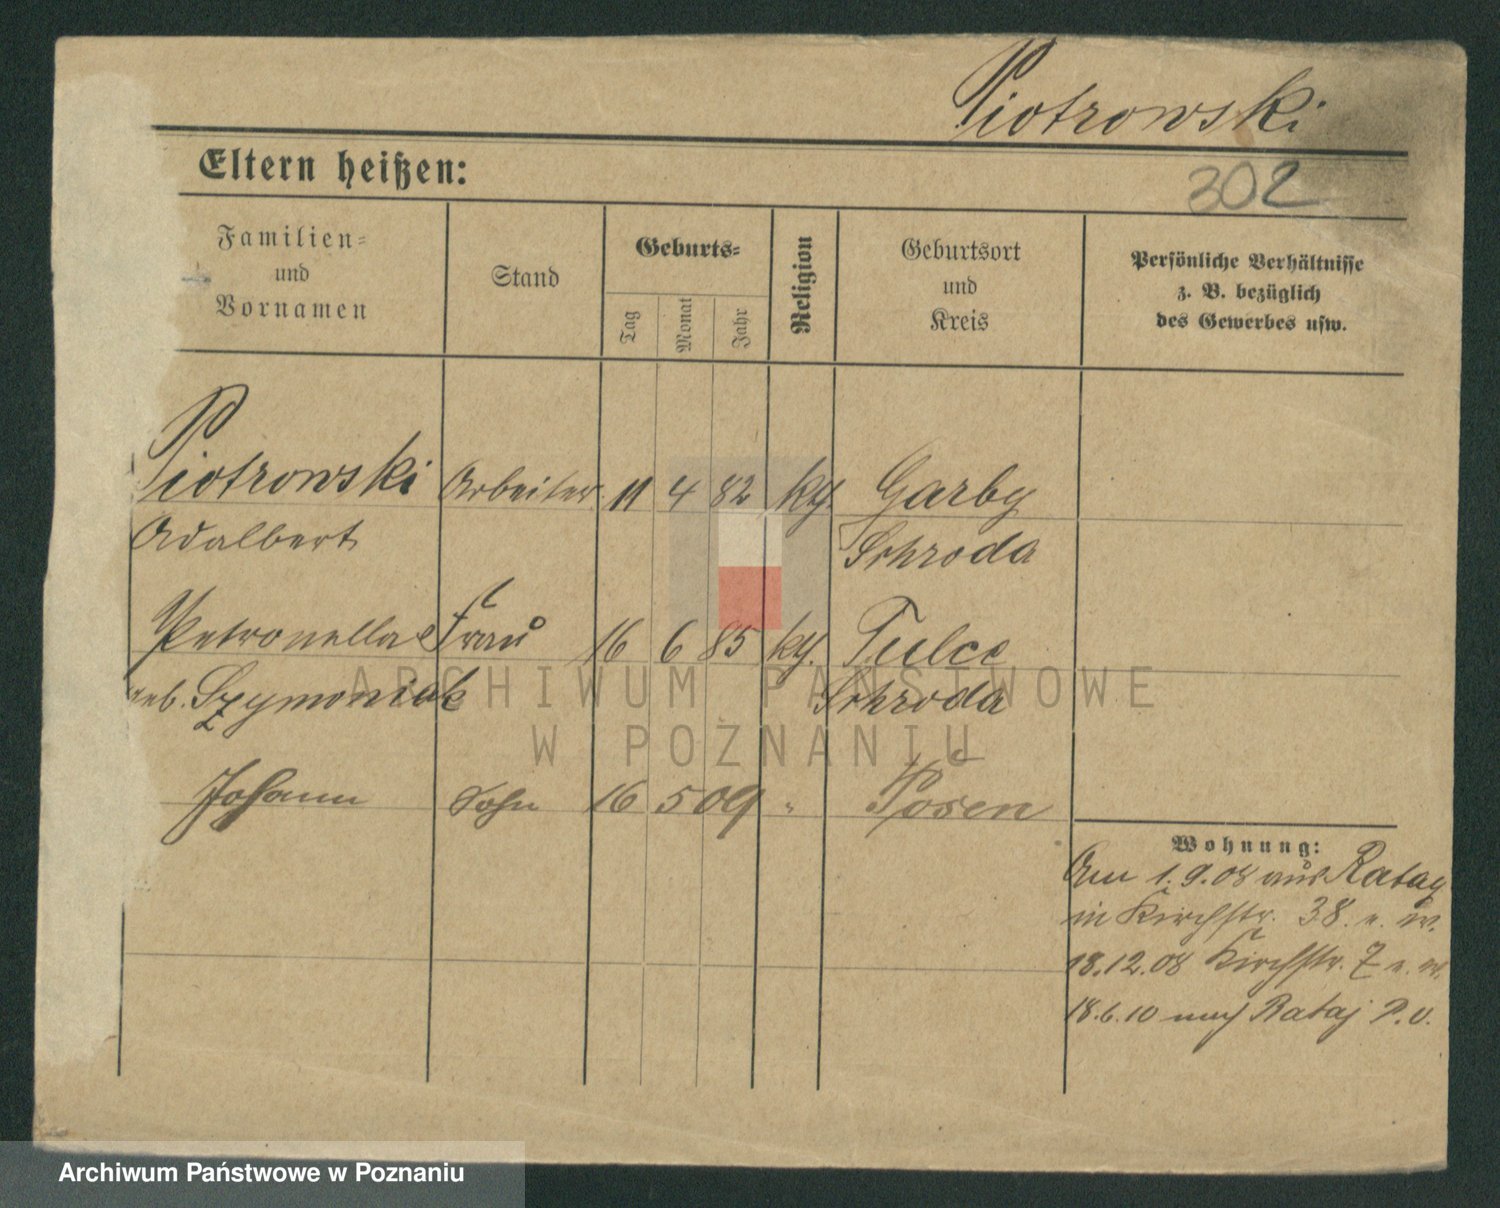 Piotrowski
Eltern heißen:
302
Familien-
und
Vornamen
Stand
Geburts-
Tag
Monat
Jahr
Religion
Geburtsort
und
Kreis
Persönliche Verhältnisse
z. B. bezüglich
des Gewerbes usw.
Piotrowski Arbeiter 11 4 82 kth. Garby
Adalbert Schroda
Petronella Frau 16 6 85 kth. Tulce
geb. Szymoniak Schroda
Johann Sohn 16 5 09 " Posen
Wohnung:
Am 1.9.08 aus Rataj
in Kirchstr. 38. e. W.
18.12.08 Kirchstr. 7 e. W.
18.6.10 nach Rataj P.O.
ARCHIWUM PAŃSTWOWE
W POZNANIU
Archiwum Państwowe w Poznaniu